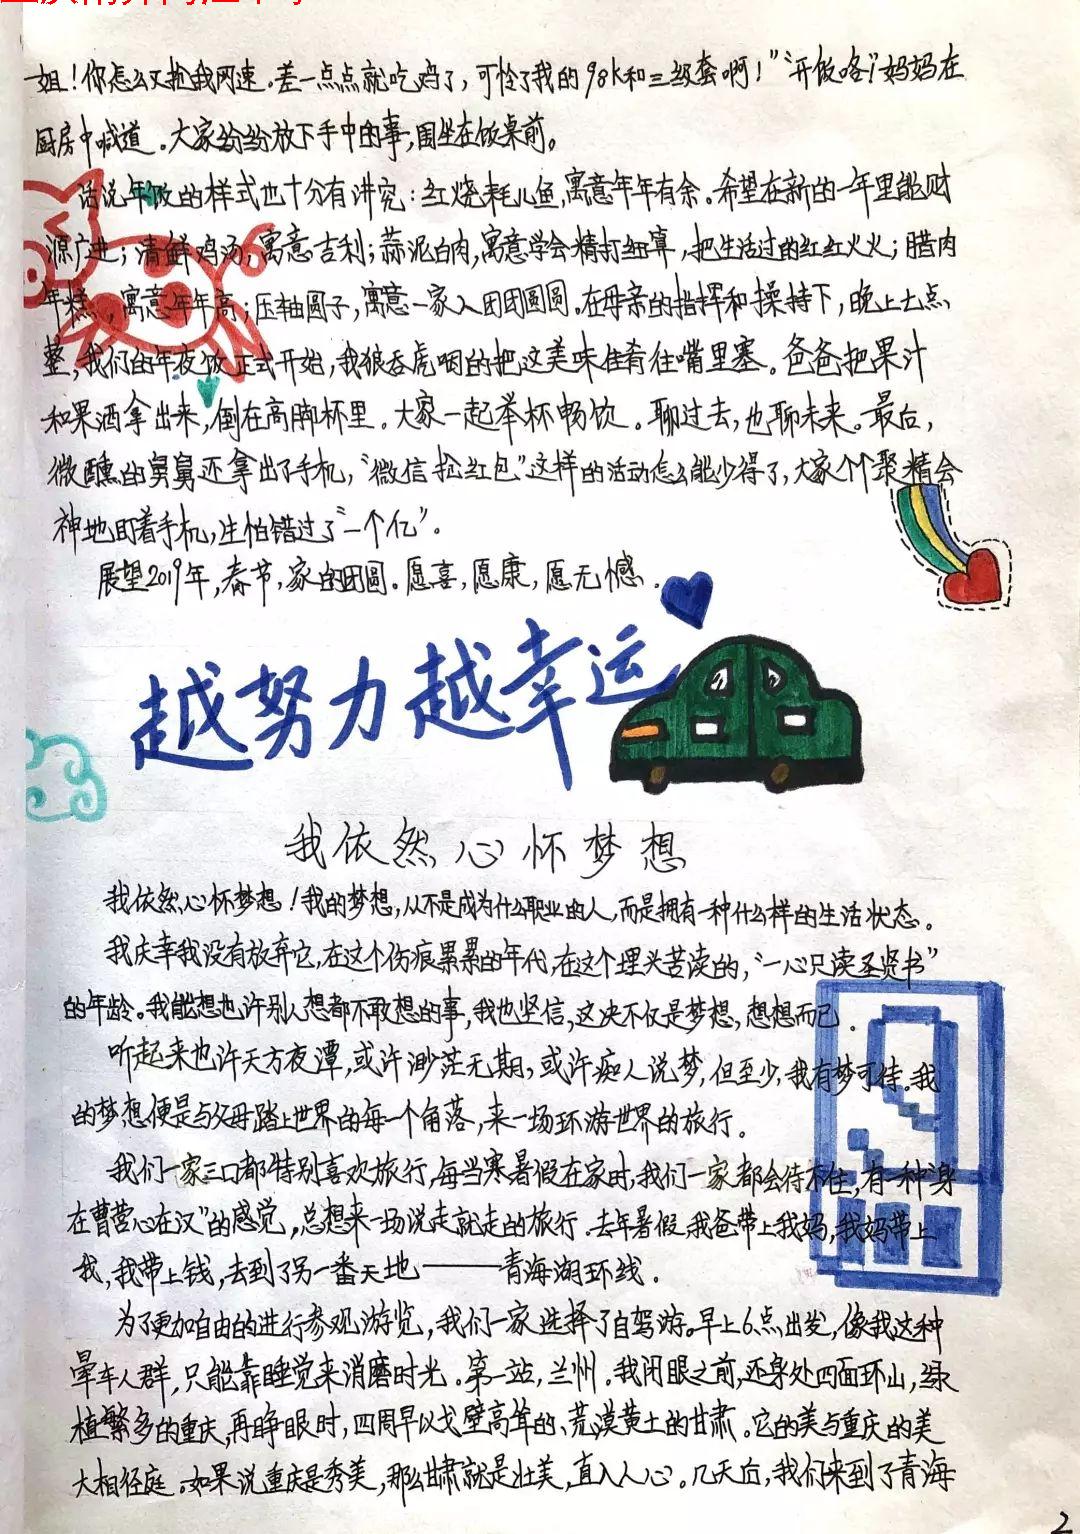 姐！你怎么又抢我网速。差一点点就吃鸡了，可怜了我的98k和三级套啊！”“开饭咯！”妈妈在
厨房中喊道。大家纷纷放下手中的事，围坐在饭桌前。
话说年饭的样式也十分有讲究：红烧耗儿鱼，寓意年年有余。希望在新的一年里能财
源广进；清鲜鸡汤，寓意吉利；蒜泥白肉，寓意学会精打细算，把生活过的红红火火；腊肉
年糕，寓意年年高；压轴圆子，寓意一家人团团圆圆。在母亲的指挥和操持下，晚上七点
整，我们的年夜饭正式开始，我狼吞虎咽的把这美味佳肴往嘴里塞。爸爸把果汁
和果酒拿出来，倒在高脚杯里。大家一起举杯畅饮。聊过去，也聊未来。最后，
微醺的舅舅还拿出了手机，“微信抢红包”这样的活动怎么能少得了，大家个个聚精会
神地盯着手机，生怕错过了“一个亿”。
展望2019年，春节，家的团圆。愿喜，愿康，愿无憾。
越努力越幸运
我依然心怀梦想
我依然心怀梦想！我的梦想，从不是成为什么职业的人，而是拥有一种什么样的生活状态。
我庆幸我没有放弃它，在这个伤痕累累的年代，在这个埋头苦读的，“一心只读圣贤书”
的年龄。我能想也许别人想都不敢想的事，我也坚信，这决不仅是梦想，想想而已。
听起来也许天方夜潭，或许渺茫无期，或许痴人说梦，但至少，我有梦可待。我
的梦想便是与父母踏上世界的每一个角落，来一场环游世界的旅行。
我们一家三口都特别喜欢旅行，每当寒暑假在家时，我们一家都会待不住，有一种“身
在曹营心在汉”的感觉，总想来一场说走就走的旅行。去年暑假，我爸带上我妈，我妈带上
我，我带上钱，去到了另一番天地——青海湖环线。
为了更加自由的进行参观游览，我们一家选择了自驾游。早上6点出发，像我这种
晕车人群，只能靠睡觉来消磨时光。第一站，兰州。我闭眼之前，还身处四面环山，绿
植繁多的重庆，再睁眼时，四周早以戈壁高耸的、荒漠黄土的甘肃。它的美与重庆的美
大相径庭。如果说重庆是秀美，那么甘肃就是壮美，直入人心。几天后，我们来到了青海
2